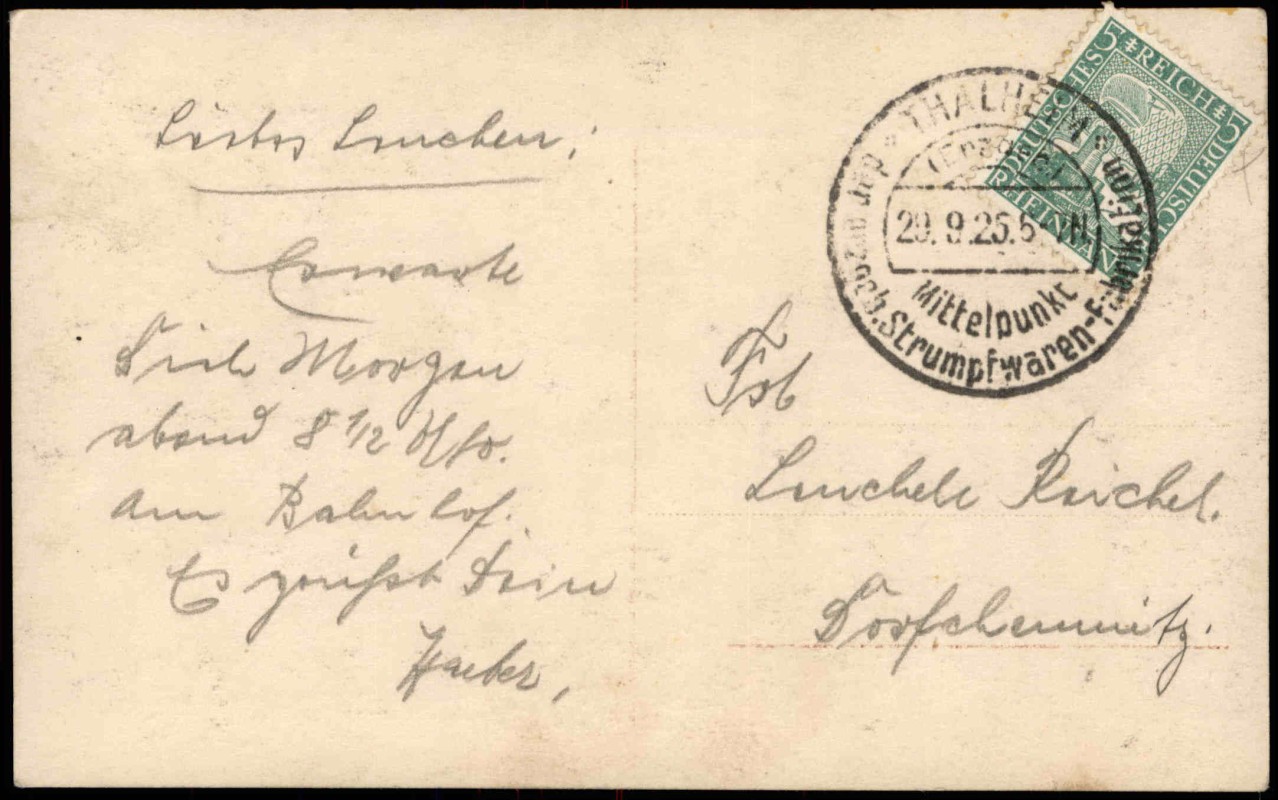 Liebes Lenchen!
Erwarte
Dich Morgen
abend 8 1/2 Uhr.
am Bahnhof.
Es grüßt Dein
THALHEIM
(Erzgeb.)
29. 9. 25. 5
Mittelpunkt
der erzgeb. Strumpfwaren-Fabrikation
5 DEUTSCHES REICH 5
DEUTSCHES REICH
RHEINLAND
Frl
Reichel.
Dorfchemnitz.